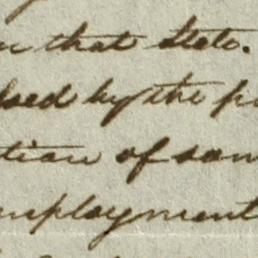 that State.
by the
tion of som
employment